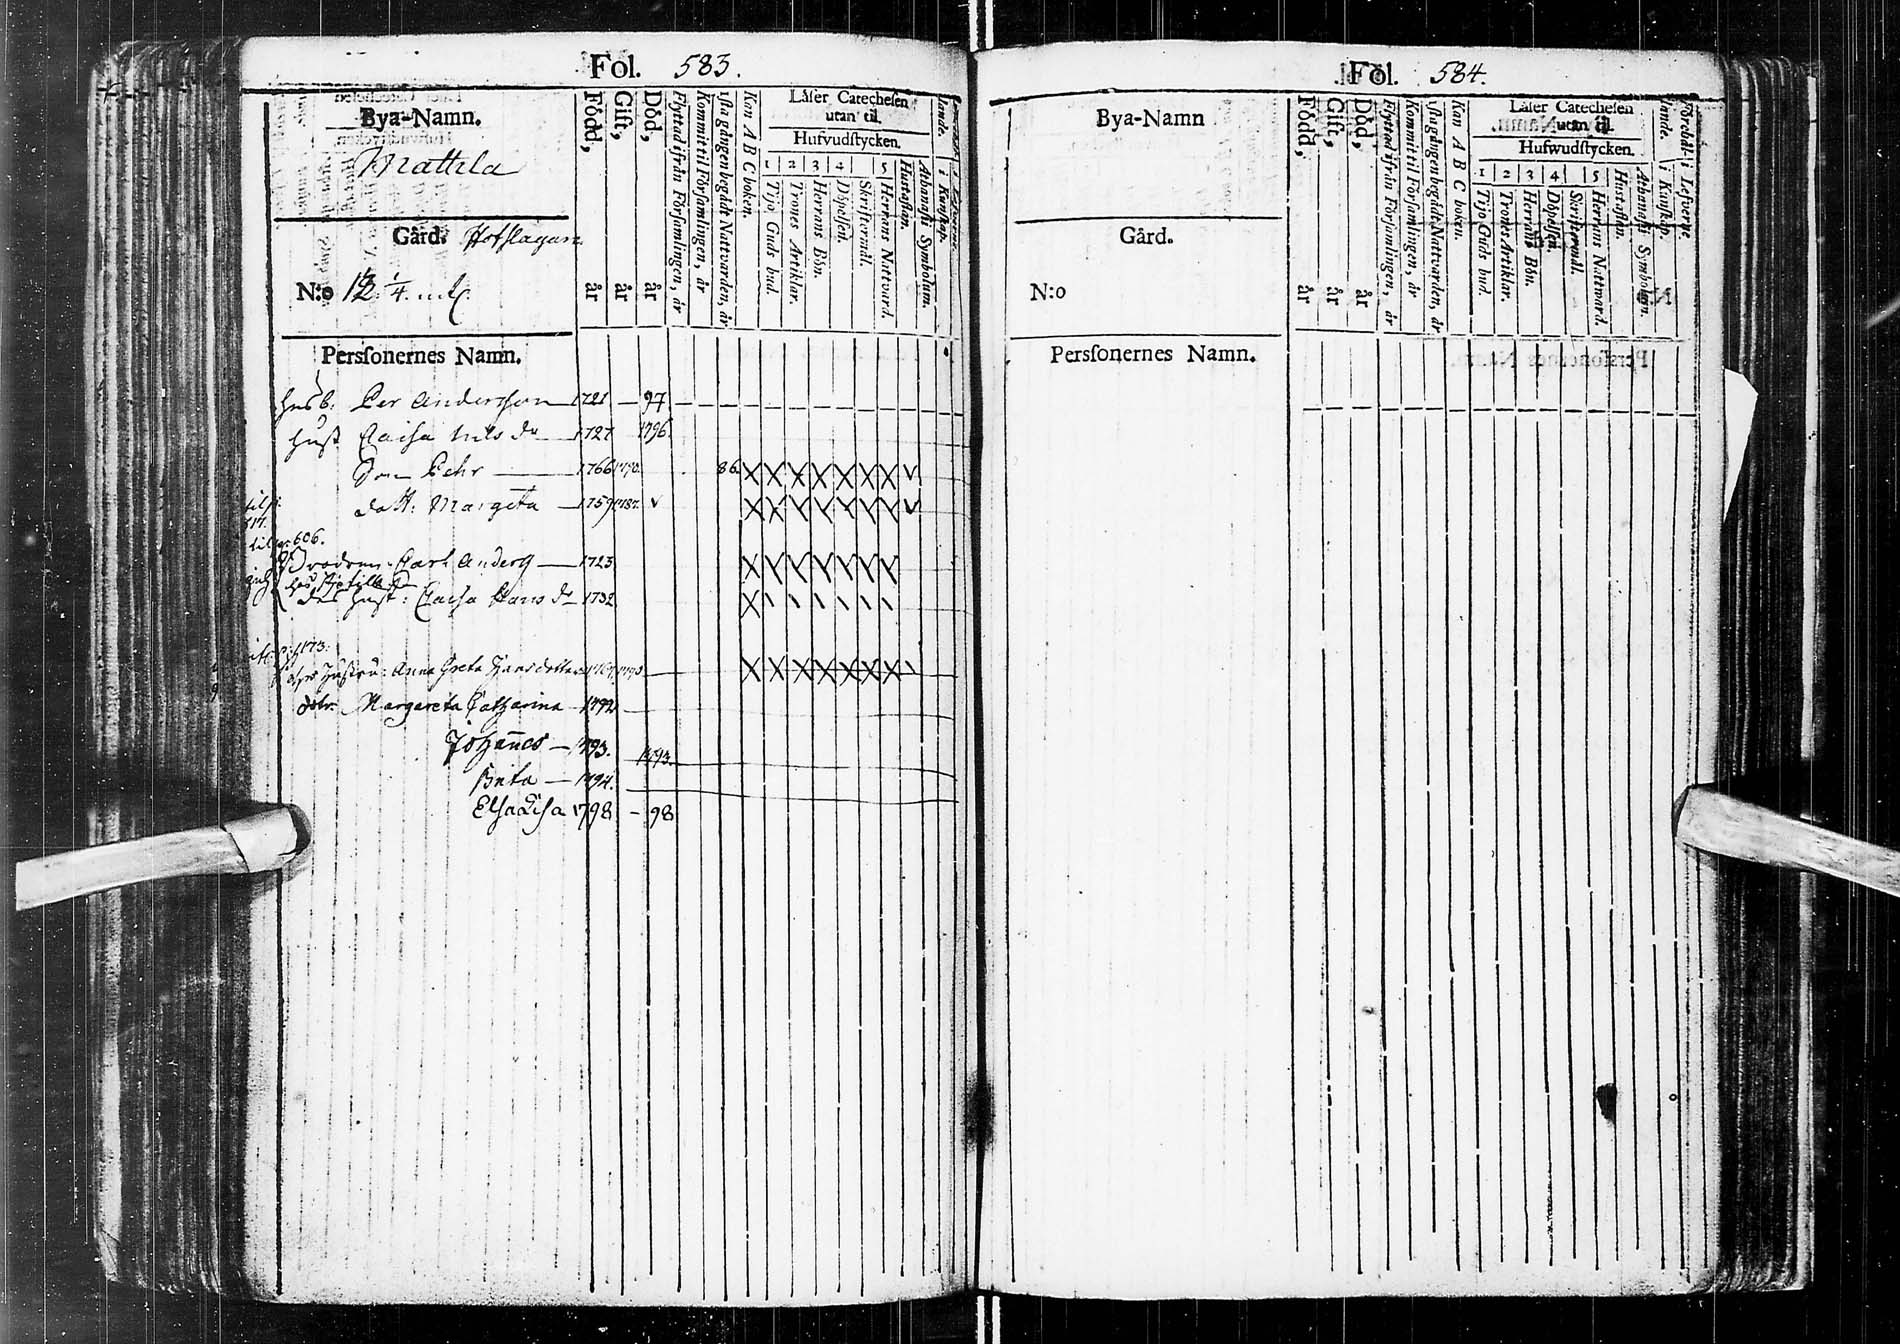 Fol. 583.
Bya-Namn.
Mattila
Gård.
N:o 12. 1/4. mtl.
Född, år
Gift, år
Död, år
Flyttad ifrån Församlingen, år
Kommit til Församlingen, år
1sta gången begådt Nattvarden, år
Kan A B C boken.
Låser Catechesen
utan til.
Hufvudstycken.
1 2 3 4 5
Tijo Guds bud.
Trones Artiklar.
Herrans Bön.
Döpelsen.
Skriftermål.
Herrans Nattvard.
Hustaflan.
Athanasii Symbolum.
i Kunskap.
Perssonernes Namn.
husb: Per Andersson 1721 – 97
hust Caisa Nils dr 1727 1796.
Son Pehr 1766 1790. 86
dott: Margeta 1759 1787.
606.
Brodren Carl Anders 1723
des hust: Caisa Hans dr 1732
Hustru: Anna Greta Hansdotter 1767 1790
dotr. Margareta Catharina 1792
Johannes – 1793. 1793.
Brita – 1794.
Elsa Lisa 1798 – 98
Fol. 584.
Bya-Namn
Gård.
N:o
Född, år
Gift, år
Död, år
Flyttad ifrån Församlingen, år
Kommit til Församlingen, år
1sta gången begådt Nattvarden, år
Kan A B C boken.
Låser Catechesen
utan til.
Hufwudstycken.
1 2 3 4 5
Tijo Guds bud.
Trones Artiklar.
Herrans Bön.
Döpelsen.
Skriftermål.
Herrans Nattward.
Hustaflan.
Athanasii Symbolum.
i Kunskap.
i Lefverne
Perssonernes Namn.